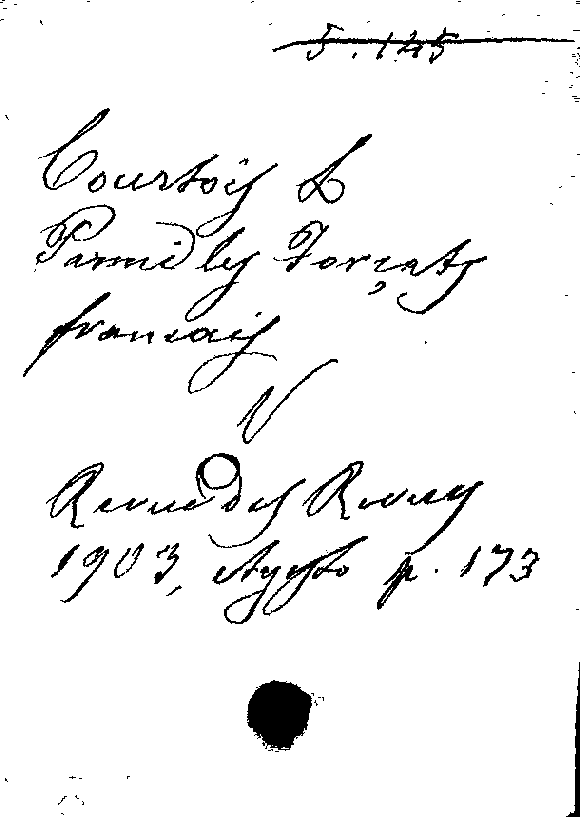 5.145
Courtois L
Parmi les Forçats
francais
V
Revue des Revues
1903, Agosto p. 173